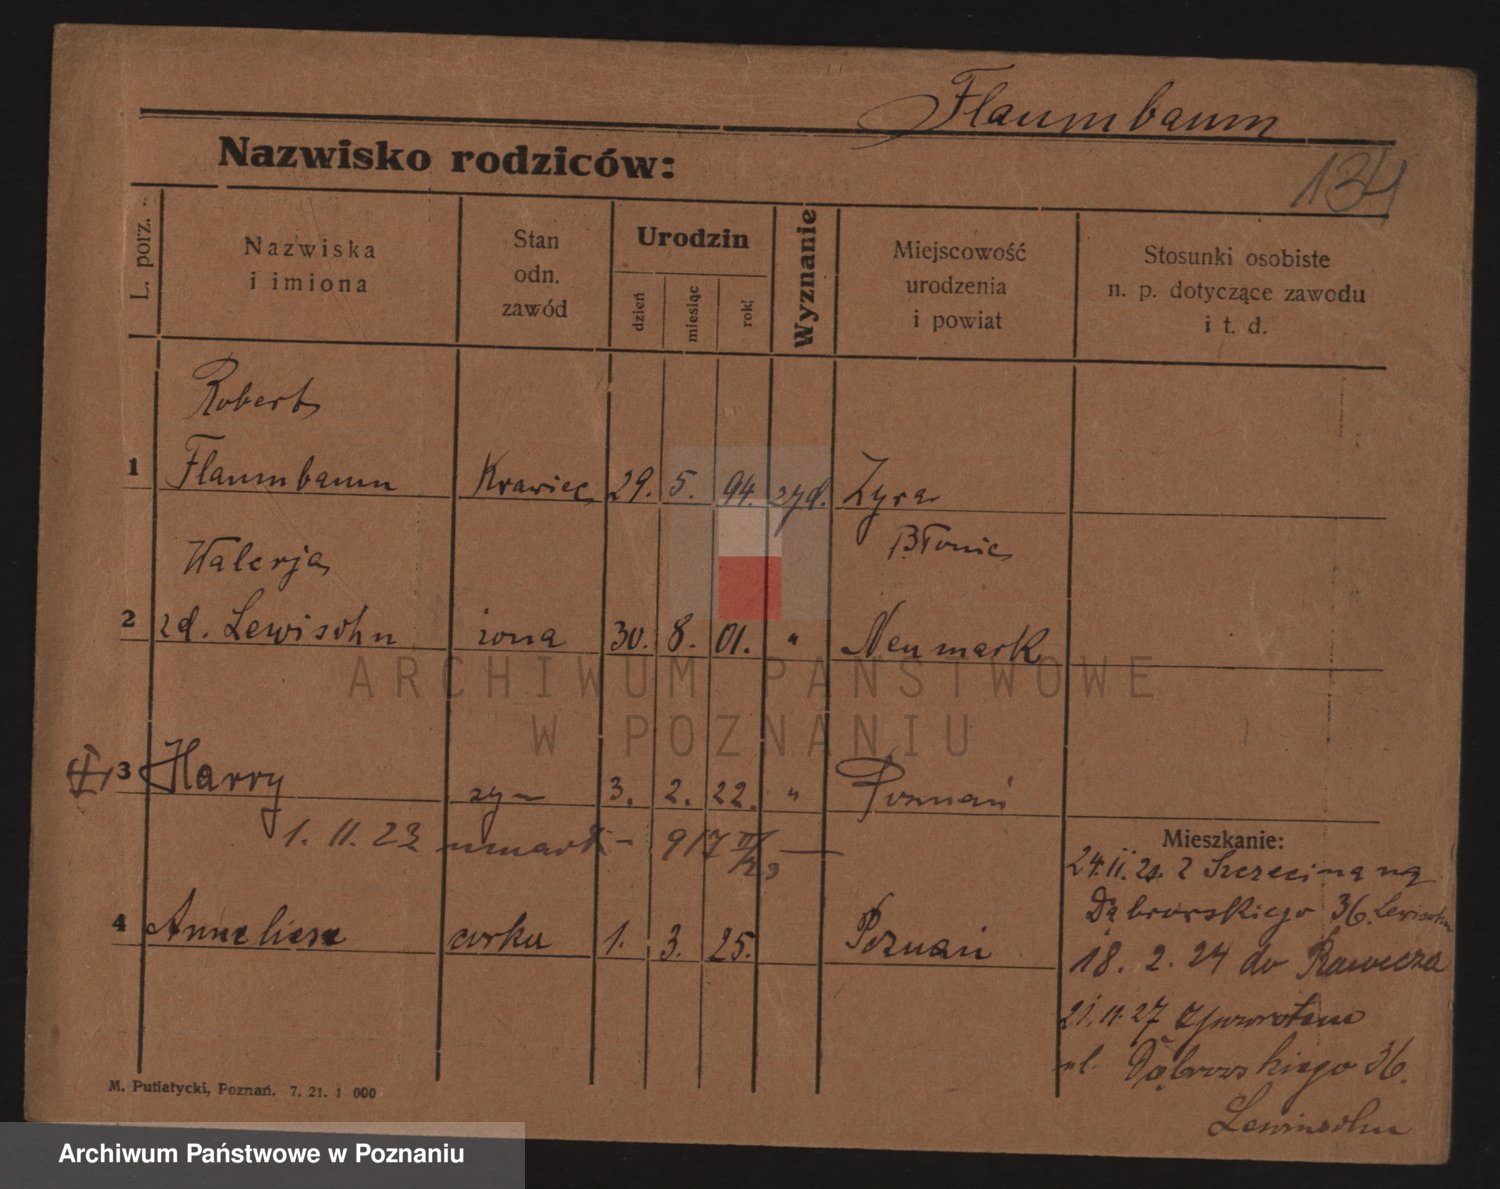 Flaumbaum
Nazwisko rodziców:
134
L. porz.
Nazwiska
i imiona
Stan
odn.
zawód
Urodzin
dzień
miesiąc
rok
Wyznanie
Miejscowość
urodzenia
i powiat
Stosunki osobiste
n. p. dotyczące zawodu
i t. d.
Robert
1 Flaumbaum Krawiec 29. 5. 94. żyd. Żyra
Błonie
Walerja
2 zd. Lewisohn żona 30. 8. 01. " Neumark
3 Harry syn 3. 2. 22. " Poznań
1. 11. 23 umarł - 917
4 Anneliese córka 1. 3. 25. Poznań
Mieszkanie:
24. II. 21. z Szczecina na
Dąbrowskiego 36. Lewisohn
18. 2. 24 do Rawicza
21. 11. 27 z powrotem
ul. Dąbrowskiego 36.
Lewinsohn
M. Putiatycki, Poznań. 7. 21. 1 000
ARCHIWUM PAŃSTWOWE
W POZNANIU
Archiwum Państwowe w Poznaniu